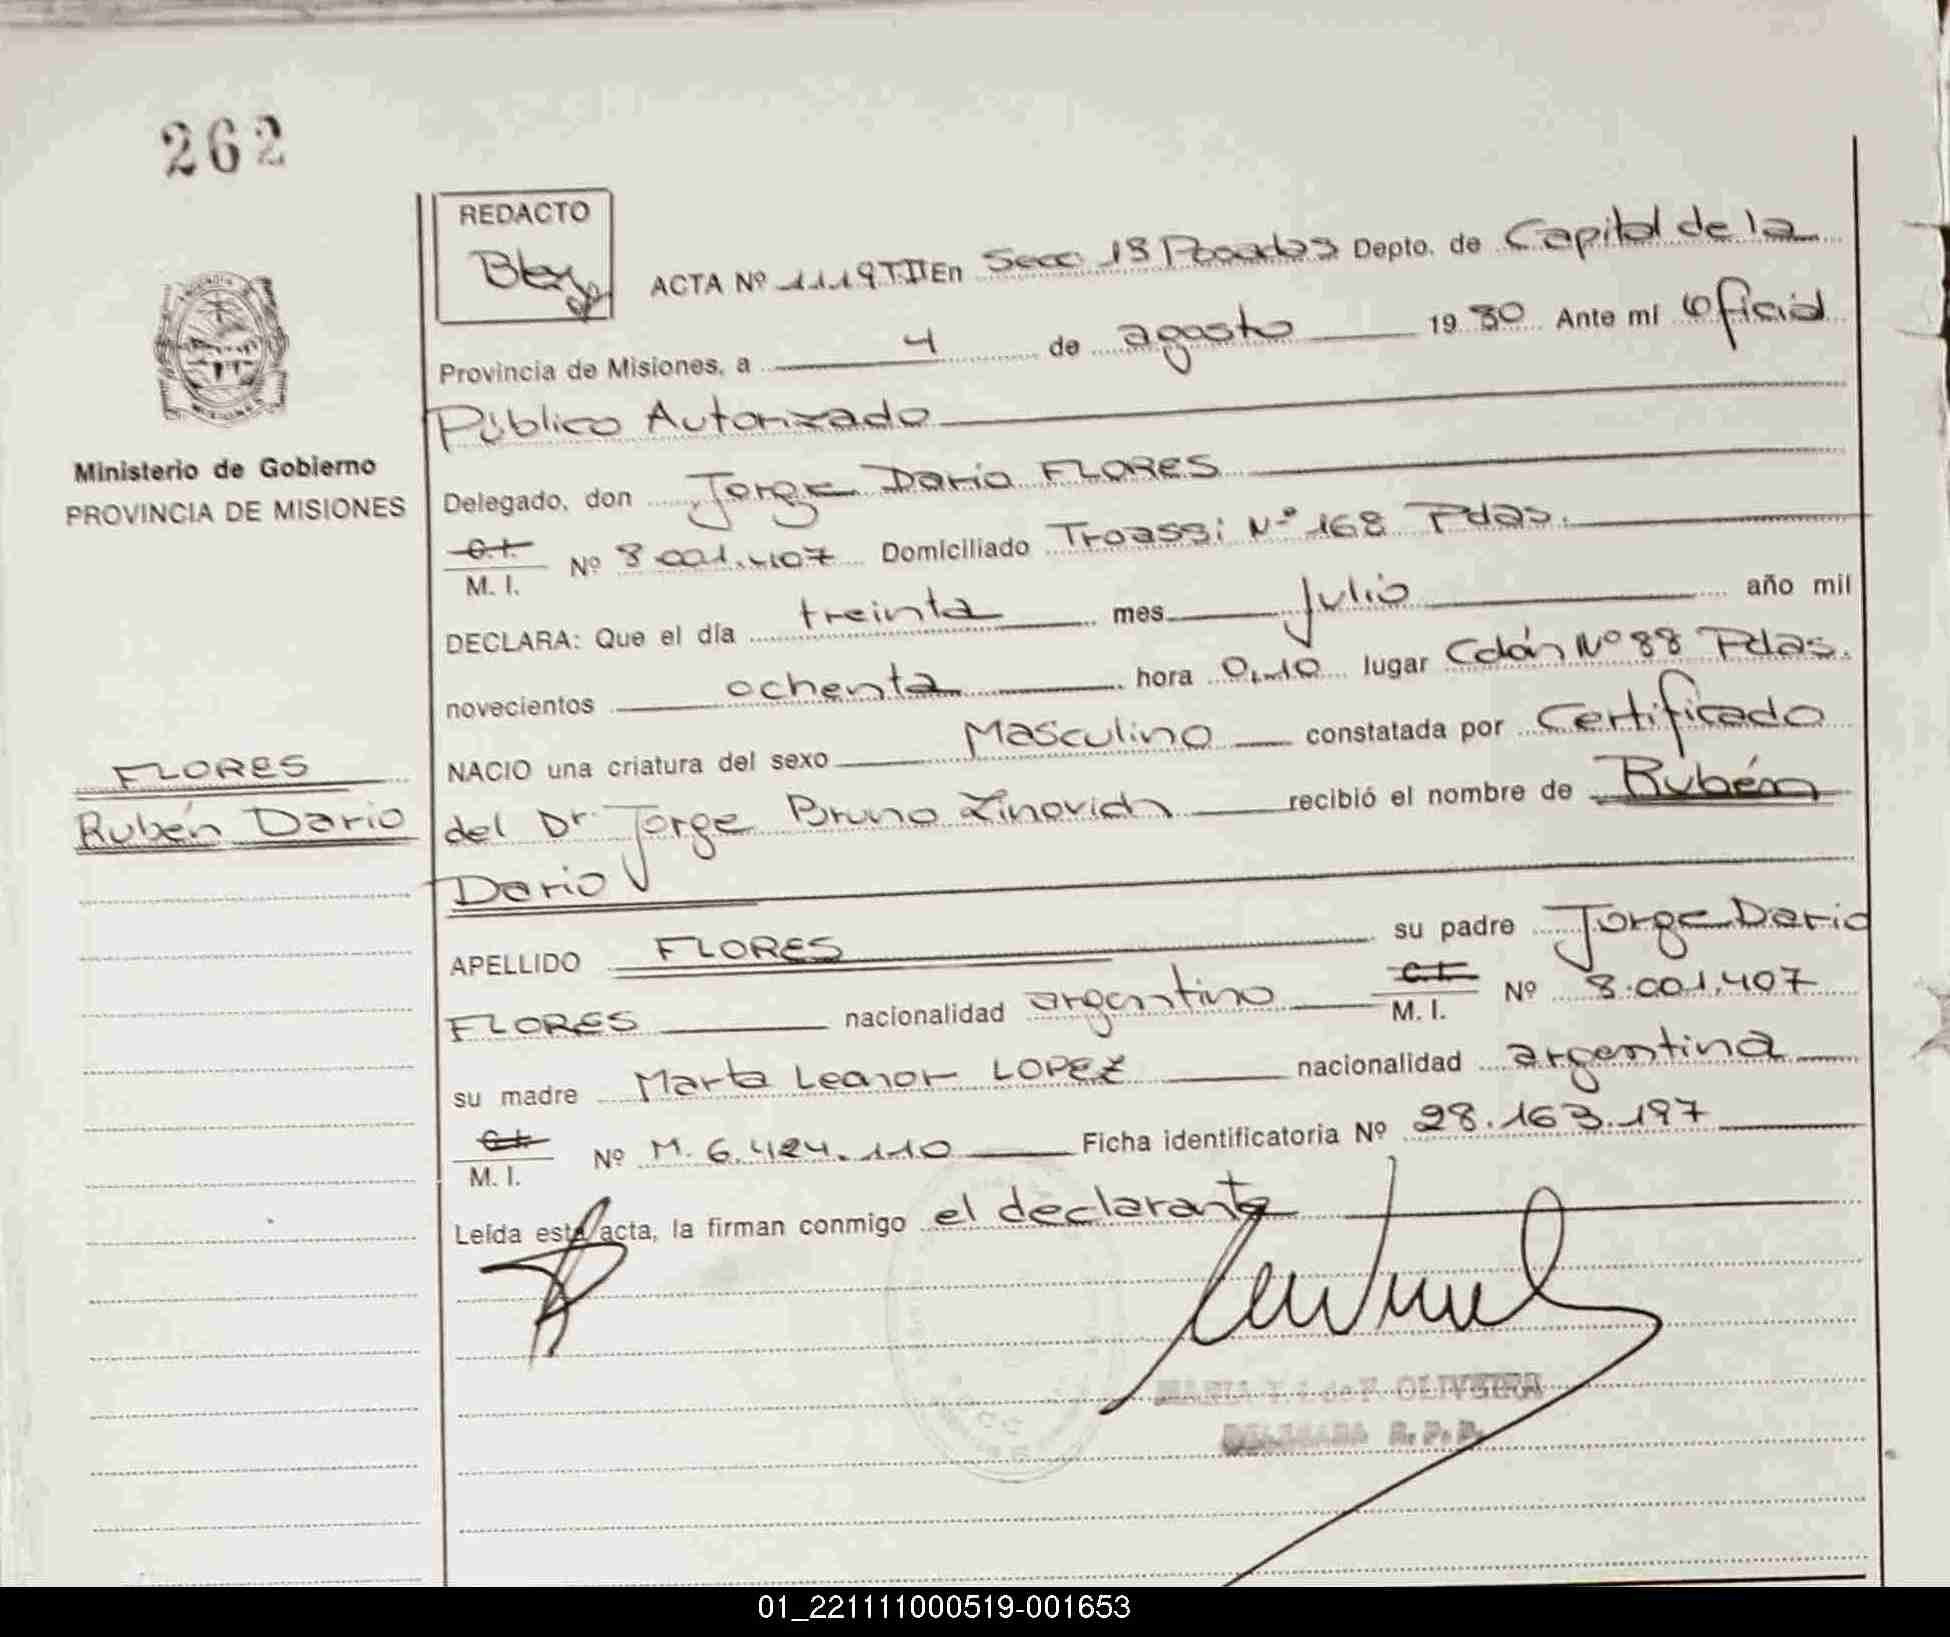 262
REDACTO
ACTA Nº 1119 T.II En Secc 13 Posadas Depto. de Capital de la
Provincia de Misiones, a 4 de agosto 1980 Ante mí Oficial
Público Autorizado
Ministerio de Gobierno
PROVINCIA DE MISIONES
Delegado, don Jorge Dario FLORES
C.I. M. I. Nº 8.001.407 Domiciliado Troassi Nº 168 Pdas.
DECLARA: Que el día treinta mes Julio año mil
novecientos ochenta hora 0,10 lugar Colón Nº 88 Pdas.
NACIO una criatura del sexo Masculino constatada por Certificado
FLORES
Rubén Dario
del Dr. Jorge Bruno Zinovich recibió el nombre de Rubén
Dario
APELLIDO FLORES su padre Jorge Dario
FLORES nacionalidad argentino C.I. M. I. Nº 8.001.407
su madre Marta Leonor LOPEZ nacionalidad argentina
C.I. M. I. Nº M. 6.424.110 Ficha identificatoria Nº 28.163.197
Leída esta acta, la firman conmigo el declarante
OLIVEIRA
DELEGADA R. P. P.
01_221111000519-001653